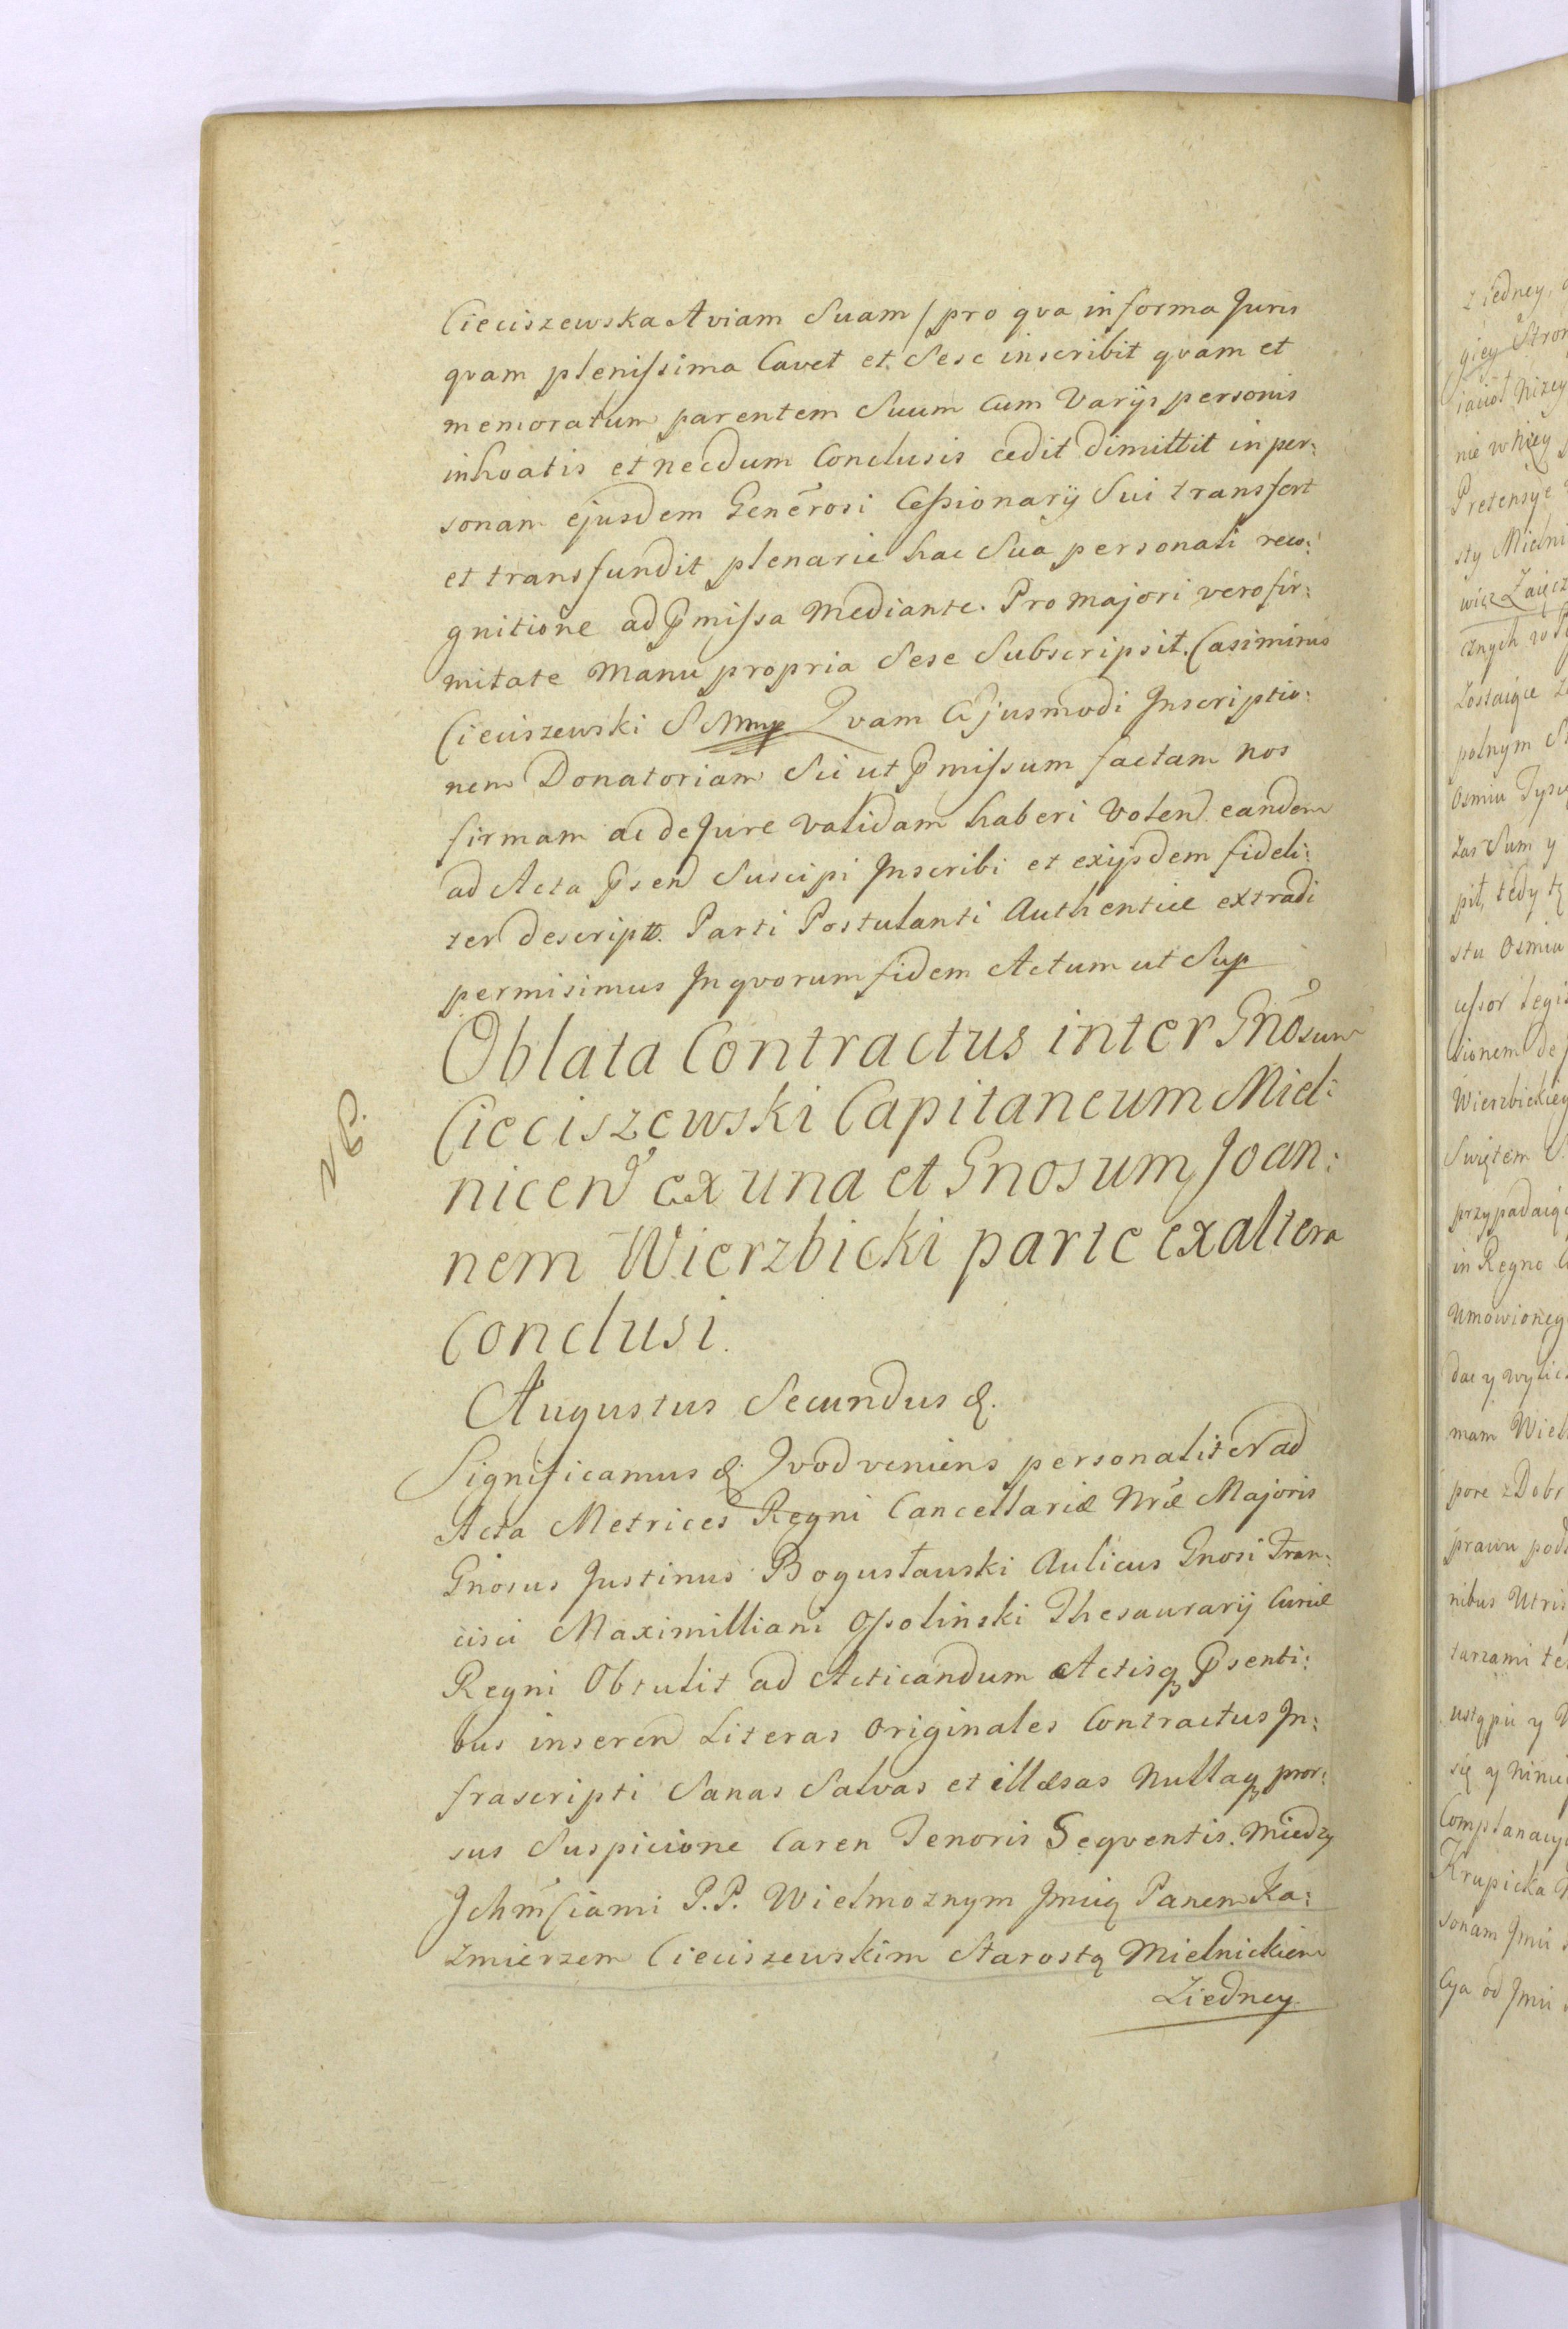 Cieciszewska Aviam Suam / pro qva in forma Juris
qvam plenissima Cavet et Sese inscribit qvam et
memoratum parentem Suum Cum Varijs personis
inhoatis et necdum Conclusis cedit dimittit in per:
sonam ejusdem Generosi Cessionarij Sui transfert
et transfundit plenarie hac Sua personali reco:
gnitione ad p̄missa mediante. Pro majori vero fir:
mitate Manu propria Sese Subscripsit. Casimirus
Cieciszewski S M mp Qvam Ejusmodi Inscriptio:
nem Donatoriam Sic ut p̄missum factam nos
firmam ac de Jure Validam haberi Volend eandem
ad Acta p̄send Suscipi Inscribi et exijsdem fideli:
ter descript. Parti Postulanti Authentice extradi
permisimus In qvorum fidem Actum ut Sup
Oblata Contractus inter Gnōsum
Cieciszewski Capitaneum Miel:
nicen ex una et Gnosum Joan:
nem Wierzbicki parte ex altera
Conclusi.
NB.
Augustus Secundus &.
Significamus & Qvod veniens personaliter ad
Acta Metrices Regni Cancellariæ Nræ Majoris
Gnosus Justinus Bogusławski Aulicus Gnosi Fran:
cisci Maximilliani Ossolinski Thesaurarij Curiæ
Regni Obtulit ad Acticandum Actisq p̄senti:
bus inseren Literas Originales Contractus In:
frascripti Sanas Salvas et illæsas Nullaq pror:
sus Suspicione Caren Tenoris Seqventis. Miedzy
Ichm̄Ciami P.P. Wielmoznym Jmcią Panem Ka:
zmierzem Cieciszewskim Starostą Mielnickiem
Ziedney
z iedney,
giey Stron
nizey
Pretensye
sty Mielni
Osmiu Tysię
zas Sum y
stu Osmiu
Wierzbickiey
Swiętem
in Regno
mam Wiel
nibus Utris
sonam Jmci
Cya od Jmci